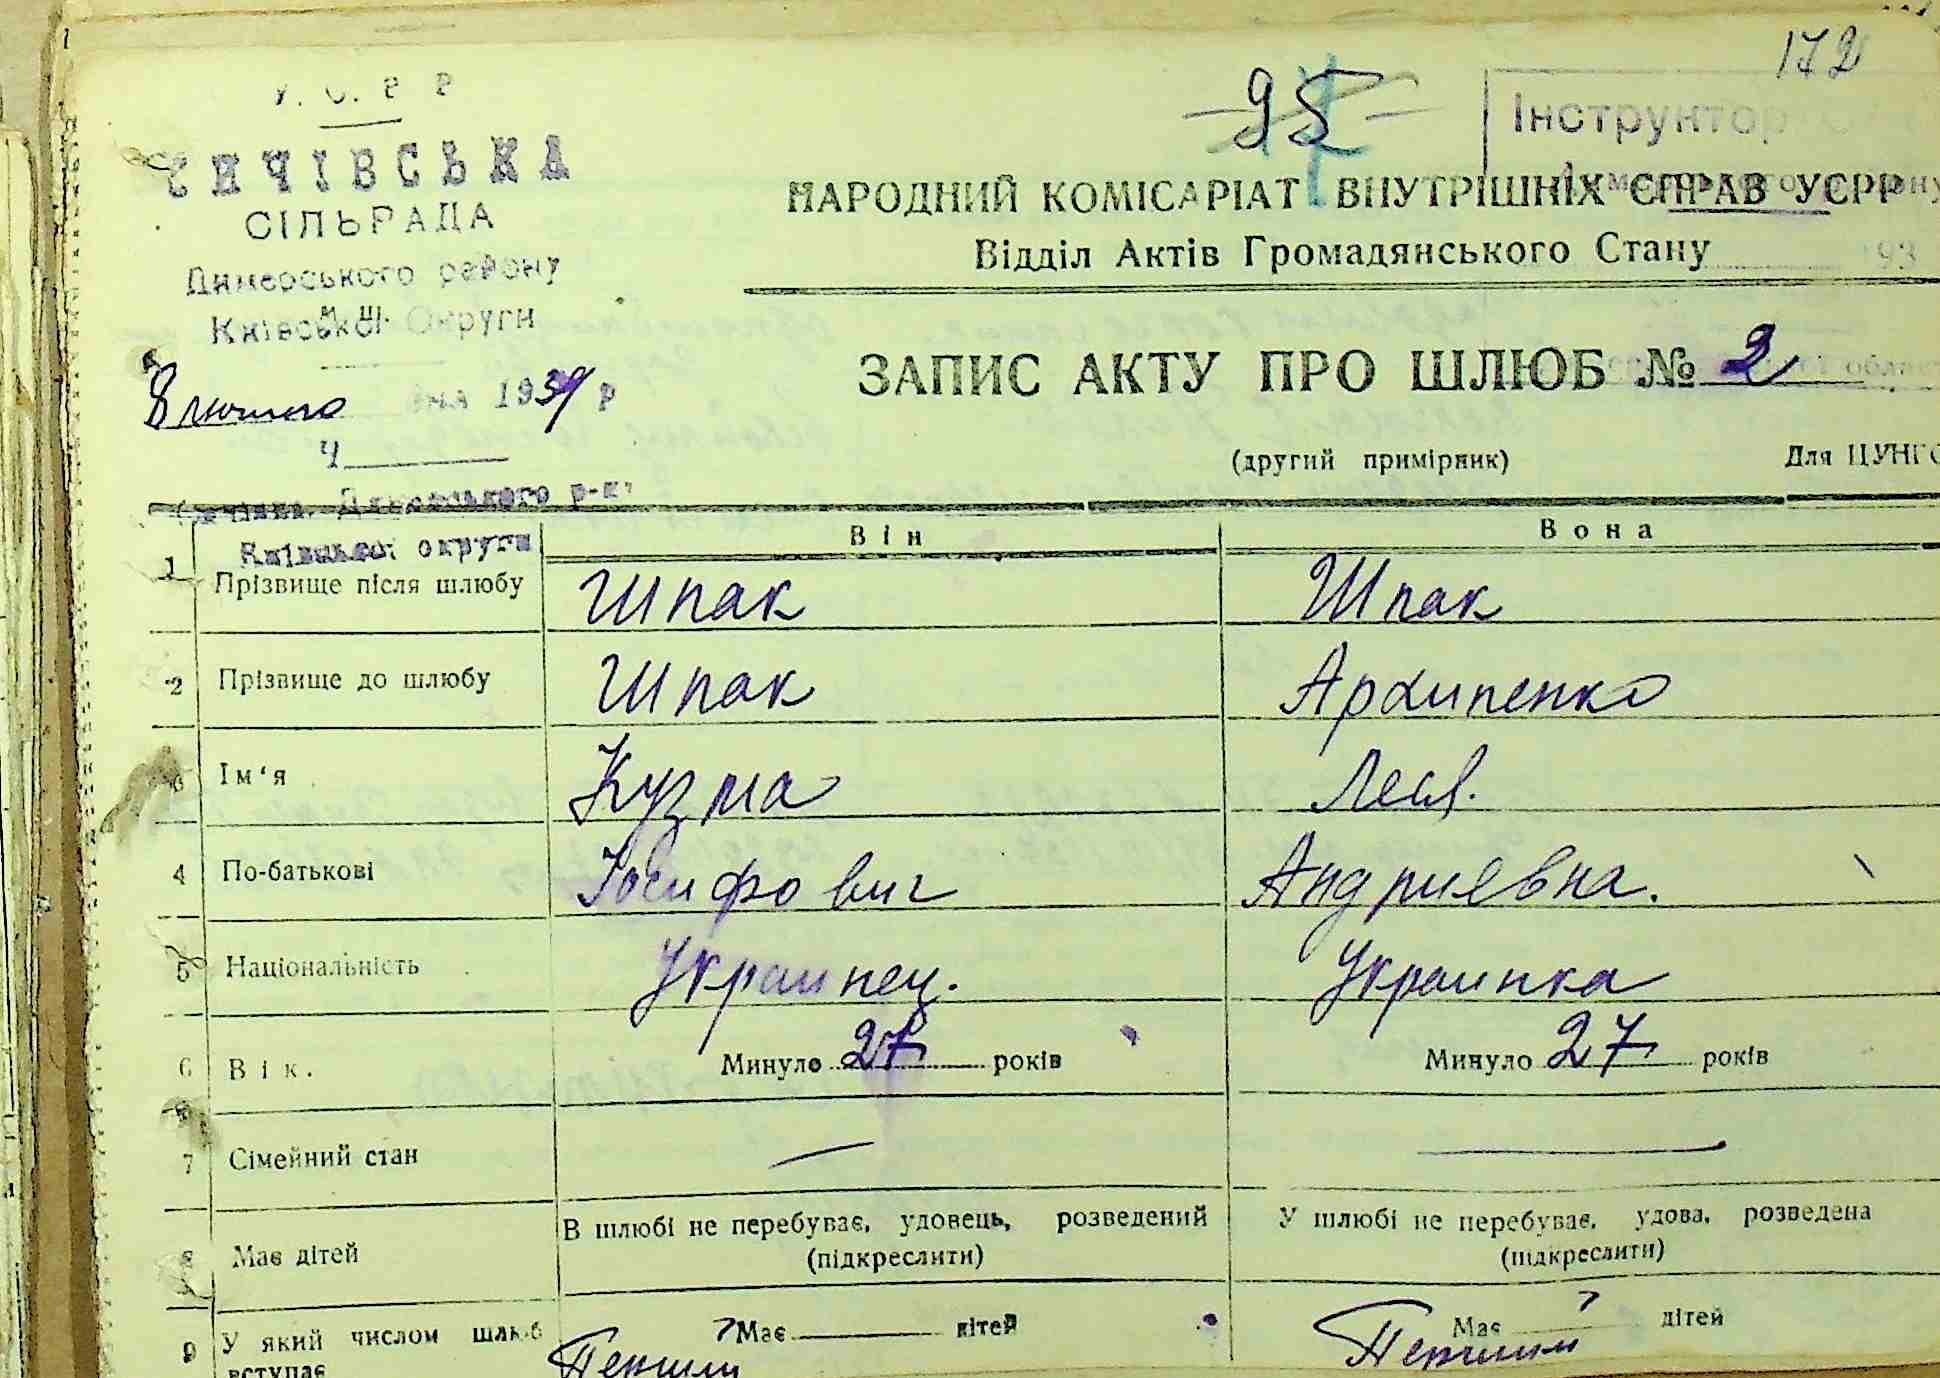 172
95
У. С. Р Р
СИЧІВСЬКА
СІЛЬРАДА
Димерського району
Київської Округи
8 лютого дня 1934 р
Ч
Димерського р-н
Київської округи
Інструктор
НАРОДНИЙ КОМІСАРІАТ ВНУТРІШНІХ СПРАВ УСРР
Відділ Актів Громадянського Стану
193
ЗАПИС АКТУ ПРО ШЛЮБ № 2
(другий примірник)
Для ЦУНГО
Він Вона
1 Прізвище після шлюбу Шпак Шпак
2 Прізвище до шлюбу Шпак Архипенко
3 Ім'я Кузма Леся.
4 По-батькові Іосифович Андриевна.
5 Національність Украинец. Украинка
6 Вік. Минуло 27 років Минуло 27 років
7 Сімейний стан — —
В шлюбі не перебуває, удовець, розведений У шлюбі не перебуває, удова, розведена
8 Має дітей (підкреслити) (підкреслити)
Має дітей Має дітей
9 У який числом шлюб Першим Першим
вступає